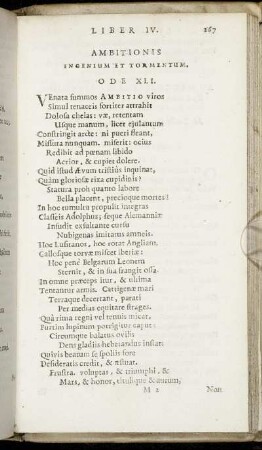 LIBER IV. 267
AMBITIONIS
INGENIUM ET TORMENTUM.
ODE XLI.
VEnata summos AMBITIO viros
Simul tenaceis fortiter attrahit
Dolosa chelas: væ, retentam
Usque manum, licet ejulantum
Constringit arcte: ni pueri fleant,
Missura nunquam. miseri: ocius
Redibit ad pœnam libido
Acrior, & cupiet dolere.
Quid illud Ævum tristius inquinat,
Quàm gloriosæ rixa cupidinis?
Statura proh quanto labore
Bella placent, precioque mortes!
In hoc tumulus propulit integras
Classeis Adolphus; seque Alemanniæ
Infudit exsultante cursu
Nubigenas imitatus amneis.
Hoc Lusitanos, hoc rotat Angliam,
Callesque torvæ miscet Iberiæ:
Hoc penè Belgarum Leonem
Sternit, & in sua frangit ossa.
In omne præceps itur, & ultima
Tentantur armis. Catrigenæ mari
Terraque decertant, parati
Per medias equitare strages.
Quà rima regni vel tenuis micat,
Furtim lupinum porrigitur caput:
Circumque balatus ovilis
Dens gladiis hebetandus instat.
Quivis beatum se spolits fore
Desideratis credit, & æstuat.
Frustra. voluptas, & triumphi, &
Mars, & honor, titulique & aurum,
M 2 Non